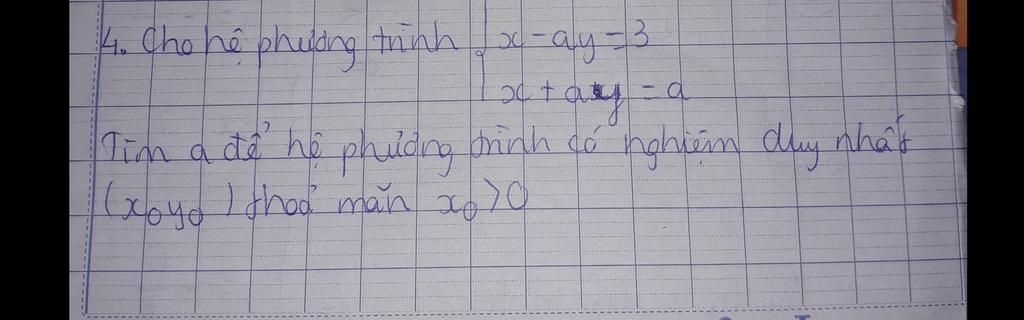 4. Cho hệ phương trình { x - ay = 3
x + ay = a
Tìm a để hệ phương trình có nghiệm duy nhất
(x₀y₀) thoả mãn x₀>0